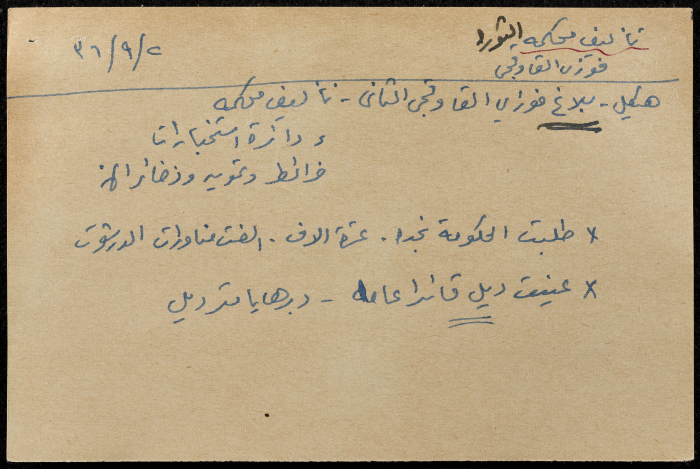 تأليف محكمه الثوره
فوزي القاوقجي
٣٦/٩/٢
هيكل - بلاغ فوزي القاوقجي الثاني - تأليف محكمه
و دائرة استخبارات
خرائط وتمويه وذخائر الخ
x طلبت الحكومة نجده . عشرة الاف . الغت مناورات الدرشوت
x عينت ديل قائدا عاما - دبرهايامتر ديل